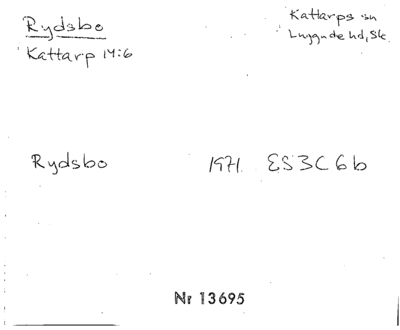 Rydsbo
Kattarp 14:6
Kattarps sn
Luggude hd, Sk.
Rydsbo 1971. ES3C6b
Nr 13695